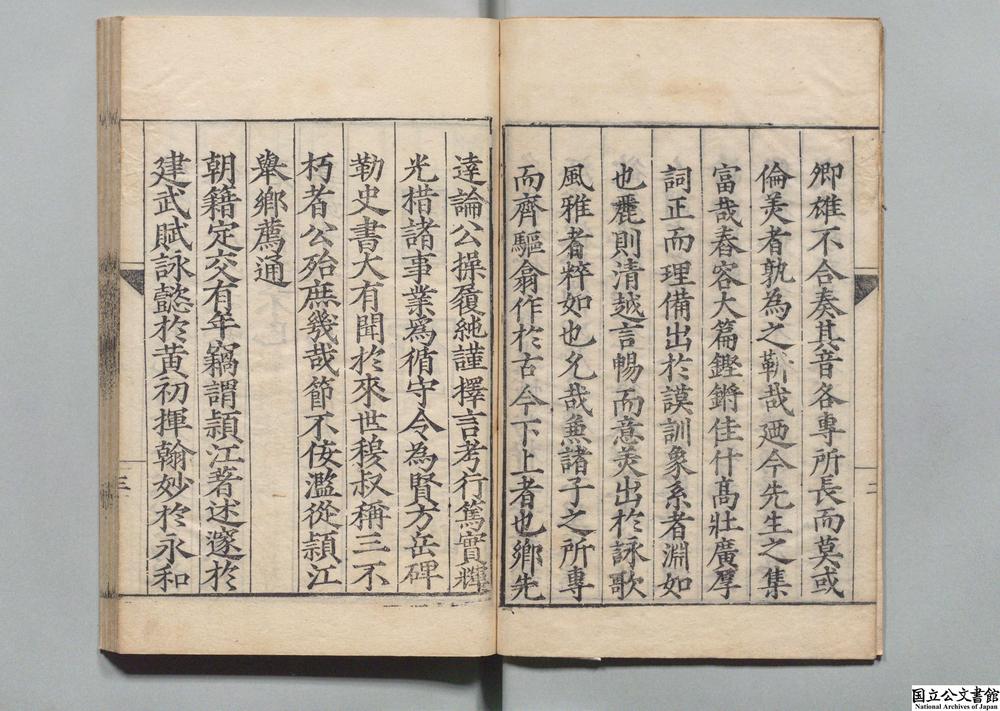 卿雄不合奏其音各專所長而莫或
倫美者孰為之靳哉廼今先生之集
富哉舂容大篇鏗鏘佳什高壯廣厚
詞正而理備出於謨訓象系者淵如
也麗則清越言暢而意美出於詠歌
風雅者粹如也允哉兼諸子之所專
而齊驅翕作於古今下上者也鄉先
二
達論公操履純謹擇言考行篤實輝
光措諸事業為循守令為賢方岳碑
勒史書大有聞於來世穆叔稱三不
朽者公殆庶幾哉節不佞濫從潁江
舉鄉薦通
朝籍定交有年竊謂潁江著述邃於
建武賦詠懿於黃初揮翰妙於永和
三
国立公文書館
National Archives of Japan